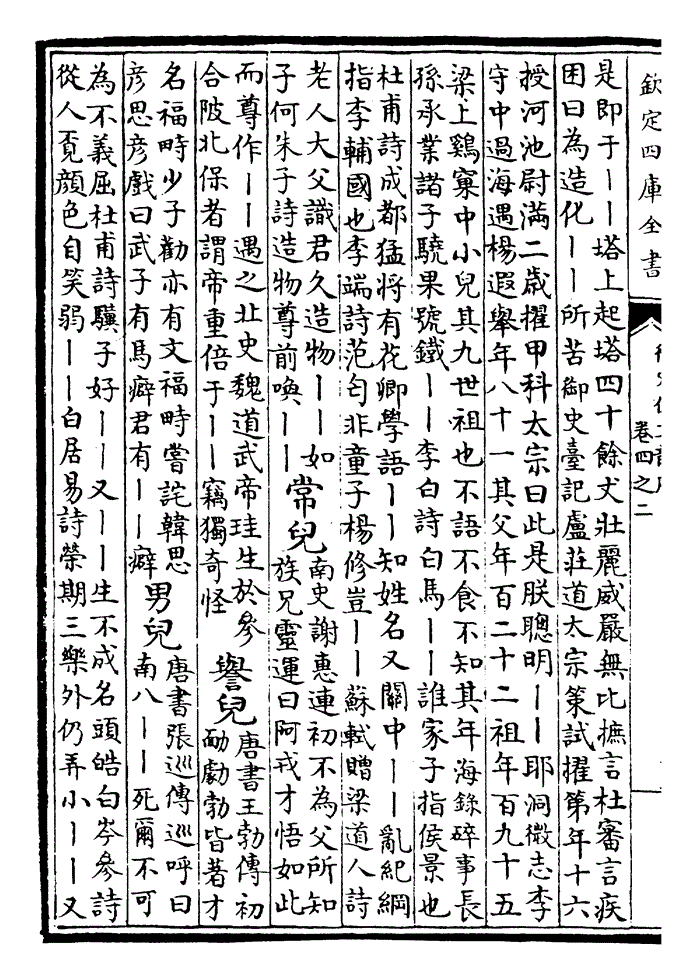 欽定四庫全書
卷四之二
是即于丨丨塔上起塔四十餘丈壯麗威嚴無比摭言杜審言疾
困曰為造化丨丨所苦御史臺記盧莊道太宗策試擢第年十六
授河池尉滿二歲擢甲科太宗曰此是朕聰明丨丨耶洞微志李
守中過海遇楊遐舉年八十一其父年百二十二祖年百九十五
梁上鷄窠中小兒其九世祖也不語不食不知其年海錄碎事長
孫承業諸子驍果號鐵丨丨李白詩白馬丨丨誰家子指侯景也
杜甫詩成都猛將有花卿學語丨丨知姓名又關中丨丨亂紀綱
指李輔國也李端詩范匄非童子楊修豈丨丨蘇軾贈梁道人詩
老人大父識君久造物丨丨如
子何朱子詩造物尊前喚丨丨
常兒
南史謝惠連初不為父所知
族兄靈運曰阿戎才悟如此
而尊作丨丨遇之北史魏道武帝珪生於參
合陂北保者謂帝重倍于丨丨竊獨奇怪
譽兒
唐書王勃傳初
勔勮勃皆著才
名福畤少子勸亦有文福畤嘗詫韓思
彥思彥戲曰武子有馬癖君有丨丨癖
男兒
唐書張巡傳巡呼曰
南八丨丨死爾不可
為不義屈杜甫詩驥子好丨丨又丨丨生不成名頭皓白岑參詩
從人覓顏色自笑弱丨丨白居易詩榮期三樂外仍弄小丨丨又